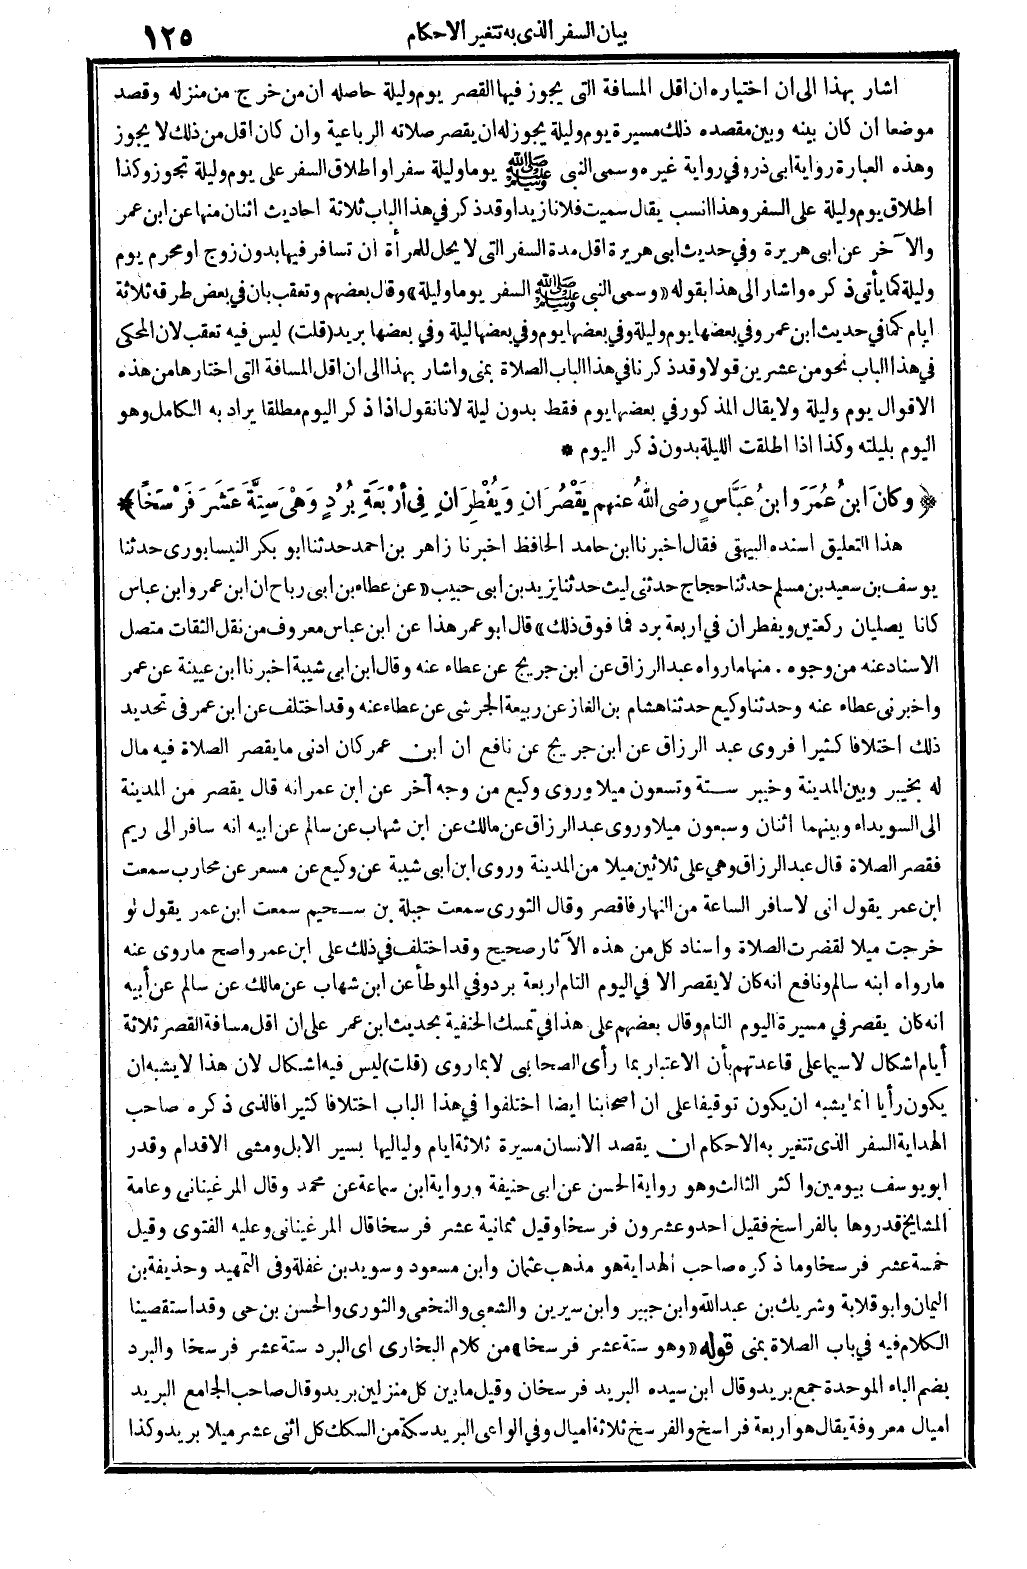 بيان السفر الذى به تتغير الاحكام
١٢٥
اشار بهذا الى ان اختياره ان اقل المسافة التى يجوز فيها القصر يوم وليلة حاصله ان من خرج من منزله وقصد
موضعا ان كان بينه وبين مقصده ذلك مسيرة يوم وليلة يجوز له ان يقصر صلاته الرباعية وان كان اقل من ذلك لا يجوز
وهذه العبارة رواية ابى ذر وفي رواية غيره وسمى النبى ﷺ يوما وليلة سفرا واطلاق السفر على يوم وليلة تجوز وكذا
اطلاق يوم وليلة على السفر وهذا انسب يقال سميت فلانا زيدا وقد ذكر في هذا الباب ثلاثة احاديث اثنان منها عن ابن عمر
والآخر عن ابى هريرة وفي حديث ابى هريرة اقل مدة السفر التى لا يحل للمرأة ان تسافر فيها بدون زوج او محرم يوم
وليلة كما يأتى ذكره واشار الى هذا بقوله «وسمى النبى ﷺ السفر يوما وليلة» وقال بعضهم وتعقب بان في بعض طرقه ثلاثة
ايام كما في حديث ابن عمر وفي بعضها يوم وليلة وفي بعضها يوم وفي بعضها ليلة وفي بعضها بريد (قلت) ليس فيه تعقب لان المحكى
في هذا الباب نحو من عشرين قولا وقد ذكرنا في هذا الباب الصلاة بمنى واشار بهذا الى ان اقل المسافة التى اختارها من هذه
الاقوال يوم وليلة ولا يقال المذكور في بعضها يوم فقط بدون ليلة لانا نقول اذا ذكر اليوم مطلقا يراد به الكامل وهو
اليوم بليلته وكذا اذا اطلقت الليلة بدون ذكر اليوم *
﴿ وَكَانَ ابنُ عُمَرَ وابنُ عَبَّاسٍ رضى اللهُ عنهم يَقْصُرَانِ وَيُفْطِرَانِ فِي أَرْبَعَةِ بُرُدٍ وَهْىَ سِتَّةَ عَشَرَ فَرْسَخًا ﴾
هذا التعليق اسنده البيهقى فقال اخبرنا ابن حامد الحافظ اخبرنا زاهر بن احمد حدثنا ابو بكر النيسابورى حدثنا
يوسف بن سعيد بن مسلم حدثنا حجاج حدثنى ليث حدثنا يزيد بن ابى حبيب «عن عطاء بن ابى رباح ان ابن عمر وابن عباس
كانا يصليان ركعتين ويفطران في اربعة برد فما فوق ذلك» قال ابو عمر هذا عن ابن عباس معروف من نقل الثقات متصل
الاسناد عنه من وجوه . منها ما رواه عبد الرزاق عن ابن جريج عن عطاء عنه وقال ابن ابى شيبة اخبرنا ابن عيينة عن عمر
واخبرنى عطاء عنه وحدثنا وكيع حدثنا هشام بن الغاز عن ربيعة الجرشى عن عطاء عنه وقد اختلف عن ابن عمر فى تحديد
ذلك اختلافا كثيرا فروى عبد الرزاق عن ابن جريج عن نافع ان ابن عمر كان ادنى ما يقصر الصلاة فيه مال
له بخيبر وبين المدينة وخيبر ستة وتسعون ميلا وروى وكيع من وجه آخر عن ابن عمر انه قال يقصر من المدينة
الى السويداء وبينهما اثنان وسبعون ميلا وروى عبد الرزاق عن مالك عن ابن شهاب عن سالم عن ابيه انه سافر الى ريم
فقصر الصلاة قال عبد الرزاق وهي على ثلاثين ميلا من المدينة وروى ابن ابى شيبة عن وكيع عن مسعر عن محارب سمعت
ابن عمر يقول انى لا سافر الساعة من النهار فاقصر وقال الثورى سمعت جبلة بن سحيم سمعت ابن عمر يقول لو
خرجت ميلا لقصرت الصلاة واسناد كل من هذه الآثار صحيح وقد اختلف في ذلك على ابن عمر واصح ما روى عنه
ما رواه ابنه سالم ونافع انه كان لا يقصر الا في اليوم التام اربعة برد وفي الموطأ عن ابن شهاب عن مالك عن سالم عن أبيه
انه كان يقصر في مسيرة اليوم التام وقال بعضهم على هذا في تمسك الحنفية بحديث ابن عمر على ان اقل مسافة القصر ثلاثة
أيام اشكال لا سيما على قاعدتهم بأن الاعتبار بما رأى الصحابى لا بما روى (قلت) ليس فيه اشكال لان هذا لا يشبه ان
يكون رأيا انما يشبه ان يكون توقيفا على ان اصحابنا ايضا اختلفوا في هذا الباب اختلافا كثيرا فالذى ذكره صاحب
الهداية السفر الذى تتغير به الاحكام ان يقصد الانسان مسيرة ثلاثة ايام ولياليها بسير الابل ومشى الاقدام وقدر
ابو يوسف بيومين واكثر الثالث وهو رواية الحسن عن ابى حنيفة ورواية ابن سماعة عن محمد وقال المرغينانى وعامة
المشايخ قدروها بالفراسخ فقيل احد وعشرون فرسخا وقيل ثمانية عشر فرسخا قال المرغينانى وعليه الفتوى وقيل
خمسة عشر فرسخا وما ذكره صاحب الهداية هو مذهب عثمان وابن مسعود وسويد بن غفلة وفى التمهيد وحذيفة بن
اليمان وابو قلابة وشريك بن عبد الله وابن جبير وابن سيرين والشعبى والنخعى والثورى والحسن بن حى وقد استقصينا
الكلام فيه في باب الصلاة بمنى قوله «وهو ستة عشر فرسخا» من كلام البخارى اى البرد ستة عشر فرسخا والبرد
بضم الباء الموحدة جمع بريد وقال ابن سيده البريد فرسخان وقيل ما بين كل منزلين بريد وقال صاحب الجامع البريد
اميال معروفة يقال هو اربعة فراسخ والفرسخ ثلاثة اميال وفي الواعى البريد سكة من السكك كل اثنى عشر ميلا بريد وكذا